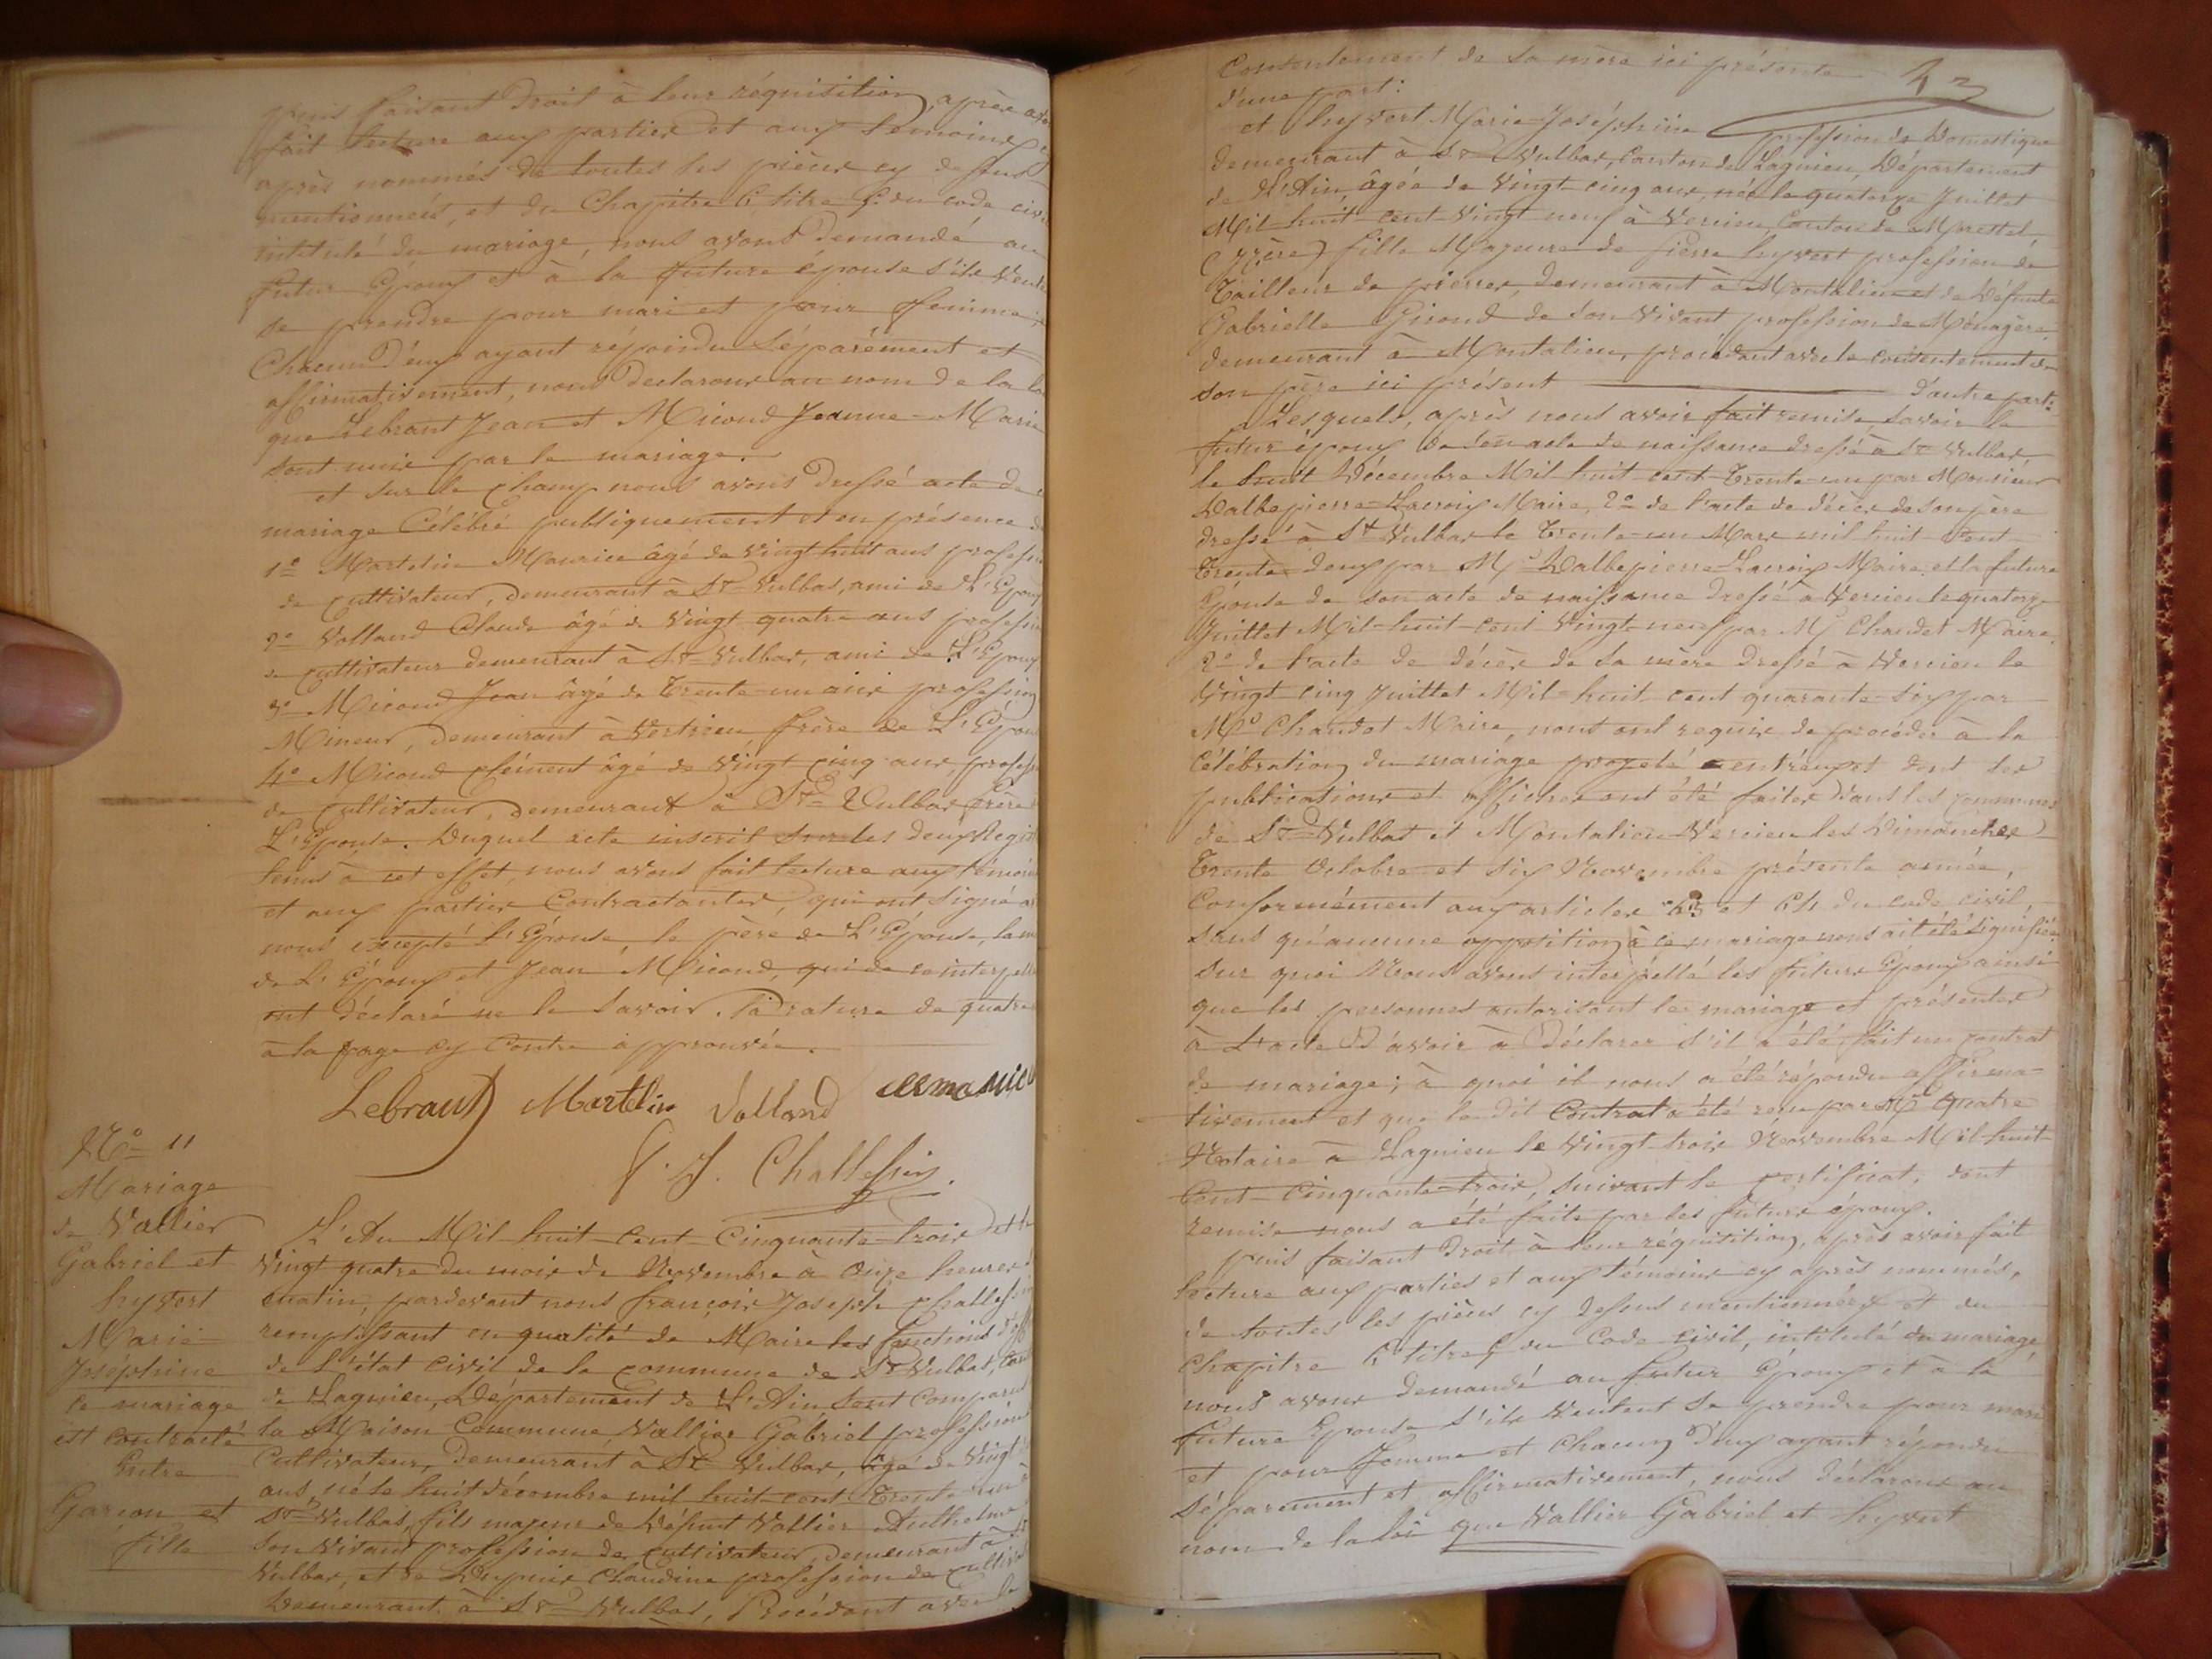 puis faisant droit à leur réquisition, après avoir
fait lecture aux parties et aux témoins cy
après nommés de toutes les pièces cy dessus
mentionnées, et du Chapitre 6 titre 5 du code civil
intitulé du mariage, nous avons demandé au
futur Époux et à la future épouse s'ils veulent
se prendre pour mari et pour femme
Chacun d'eux ayant répondu Séparément et
affirmativement, nous declarons au nom de la loi
que Lebrant Jean et Micoud Jeanne-Marie
sont unis par le mariage.
et sur le champ nous avons dressé acte de
mariage Célébré publiquement et en présence de
1º Martelin Maurice âgé de vingt huit ans profession
de cultivateur, demeurant à St Vulbas, ami de L'Epoux
2º Volland Claude âgé de vingt quatre ans profession
de cultivateur demeurant à St Vulbas, ami de L'Epoux
3º Micoud Jean âgé de Trente-un ans profession
Mineur, demeurant à Vertrieu frère de L'Épouse
4º Micoud clément âgé de Vingt cinq ans, profession
de cultivateur, demeurant à St Vulbas frère
L'Épouse. Duquel acte inscrit sur les deux Registres
tenus à cet effet, nous avons fait lecture aux témoins
et aux parties Contractantes, qui ont signé avec
nous excepté l'Épouse, le père de L'Épouse, la mère
de L'Époux et Jean Micoud, qui de ce interpellés
ont déclaré ne le Savoir. La rature de quatre
à la page cy Contre approuvée.
Lebraut Martelin Volland
F. J. Challessin.
Nº 11
Mariage
de Vallier
Gabriel et
hyvert
Marie
Joséphine
le mariage
est contracté
Entre
Garçon et
fille
L'An Mil huit-Cent-Cinquante-trois et le
Vingt quatre du mois de Novembre à Onze heures du
matin, pardevant nous françois Joseph Challessin
remplissant en qualité de Maire les fonctions d'off
de L'état civil de la commune de St Vulbas, Canton
de Lagnieu, Département de L'Ain sont Comparus
la Maison Commune Vallier Gabriel profession
Cultivateur, Demeurant à St Vulbas, âgé de Vingt
ans, né le huit décembre mil huit-cent-Trente-un à
St Vulbas, fils majeur de Défunt Vallier Anthelme
Son Vivant profession de cultivateur, demeurant à St
Vulbas, et de Dupuis Claudine profession de cultiv
Demeurant à St Vulbas, Procédant avec le
Consentement de sa mère ici présente
43
d'une part:
et hyvert Marie Joséphine profession de Domestique
demeurant à St Vulbas, Canton de Lagnieu, Département
de L'Ain, âgée de Vingt-cinq ans, née le quatorze Juillet
Mil huit cent Vingt neuf à Vercieu, Canton de Morestel
(Isère) fille Majeure de Pierre hyvert profession de
Tailleur de pierres, demeurant à Montalieu et de Défunte
Gabrielle Giroud de son Vivant profession de Ménagère
demeurant à Montalieu, procédant avec le consentement de
son père ici présent d'autre part:
Lesquels, après nous avoir fait remise savoir le
futur époux de son acte de naissance dressé à St Vulbas
le huit Décembre Mil-huit-cent-Trente-un par Monsieur
Dalbepierre-Lacroix Maire, 2º de l'acte de décès de son père
dressé à St Vulbas le Trente-un Mars mil huit-Cent-
Trente-deux par Mr Dalbepierre-Lacroix Maire et la future
Épouse de son acte de naissance dressé à Vercieu le quatorze
Juillet Mil-huit-cent Vingt-neuf par Mr Chaudet Maire
2º de l'acte de décès de sa mère dressé à Vercieu le
Vingt cinq Juillet Mil-huit cent quarante-six par
Mr Chaudet Maire, nous ont requis de procéder à la
Célébration du mariage projeté entr'eux et dont les
publications et affiches ont été faites dans les communes
de St Vulbas et Montalieu-Vercieu les Dimanches
Trente Octobre et Six Novembre présente année,
Conformément aux articles 63 et 64 du code civil,
sans qu'aucune opposition à ce mariage nous ait été signifiée
sur quoi Nous avons interpellé les futurs Époux ainsi
que les personnes autorisant le mariage et présentes
à L'acte d'avoir à Déclarer s'il a été fait un contrat
de mariage; à quoi il nous a été répondu affirma-
tivement et que le dit Contrat a été reçu par Me Quatre
Notaire à Lagnieu le Vingt-trois Novembre Mil-huit-
Cent-Cinquante-trois, suivant le certificat, dont
remise nous a été faite par les futurs époux.
puis faisant droit à leur réquisition, après avoir fait
lecture aux parties et aux témoins cy après nommés,
de toutes les pièces cy dessus mentionnées et du
Chapitre 6 titre 5 du Code civil, intitulé du mariage
nous avons demandé au futur Époux et à la
future Épouse s'ils veulent se prendre pour mari
et pour femme et chacun d'eux ayant répondu
séparément et affirmativement, nous déclarons au
nom de la loi que Vallier Gabriel et hyvert